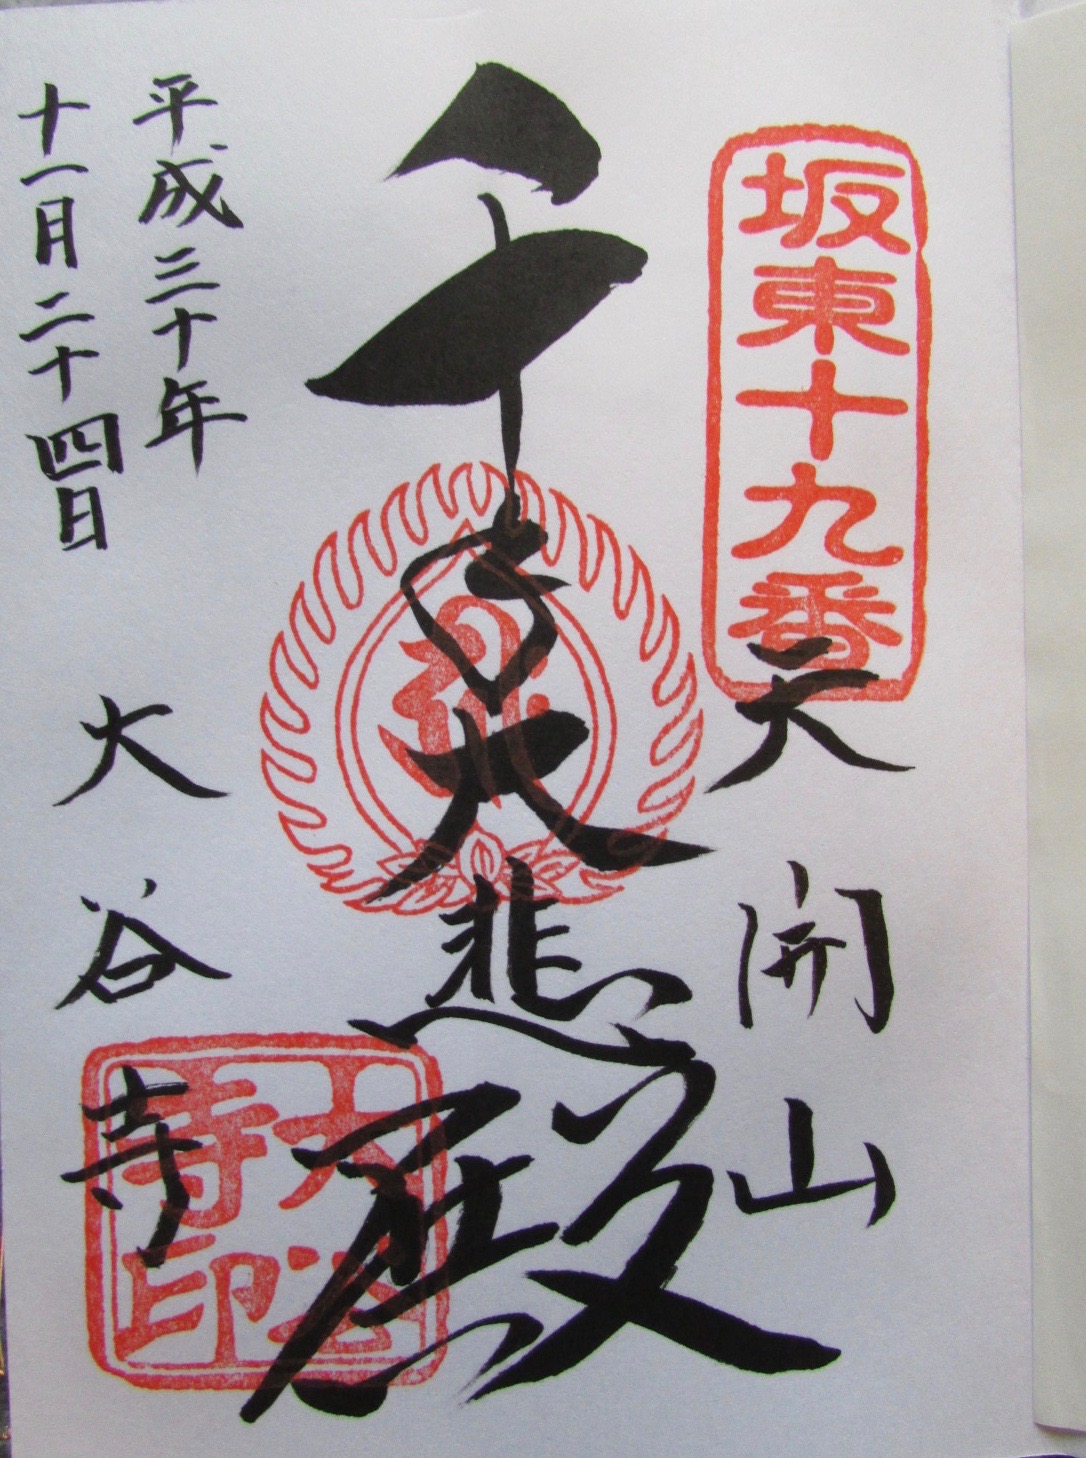 坂東十九番
天開山
千手大悲殿
平成三十年
十一月二十四日
大谷寺
大谷
寺印